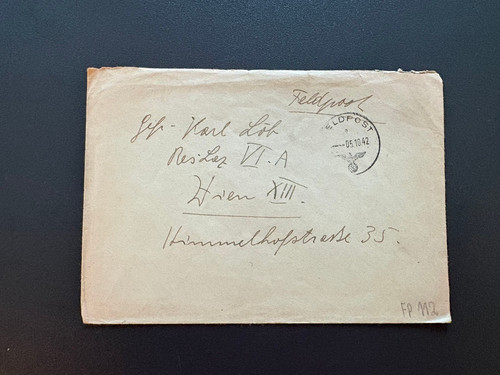 Feldpost
FELDPOST
05.10.42
Gefr. Karl Löb
Res Laz VI. A
Wien XIII.
Himmelhofstrasse 35.
FP 112